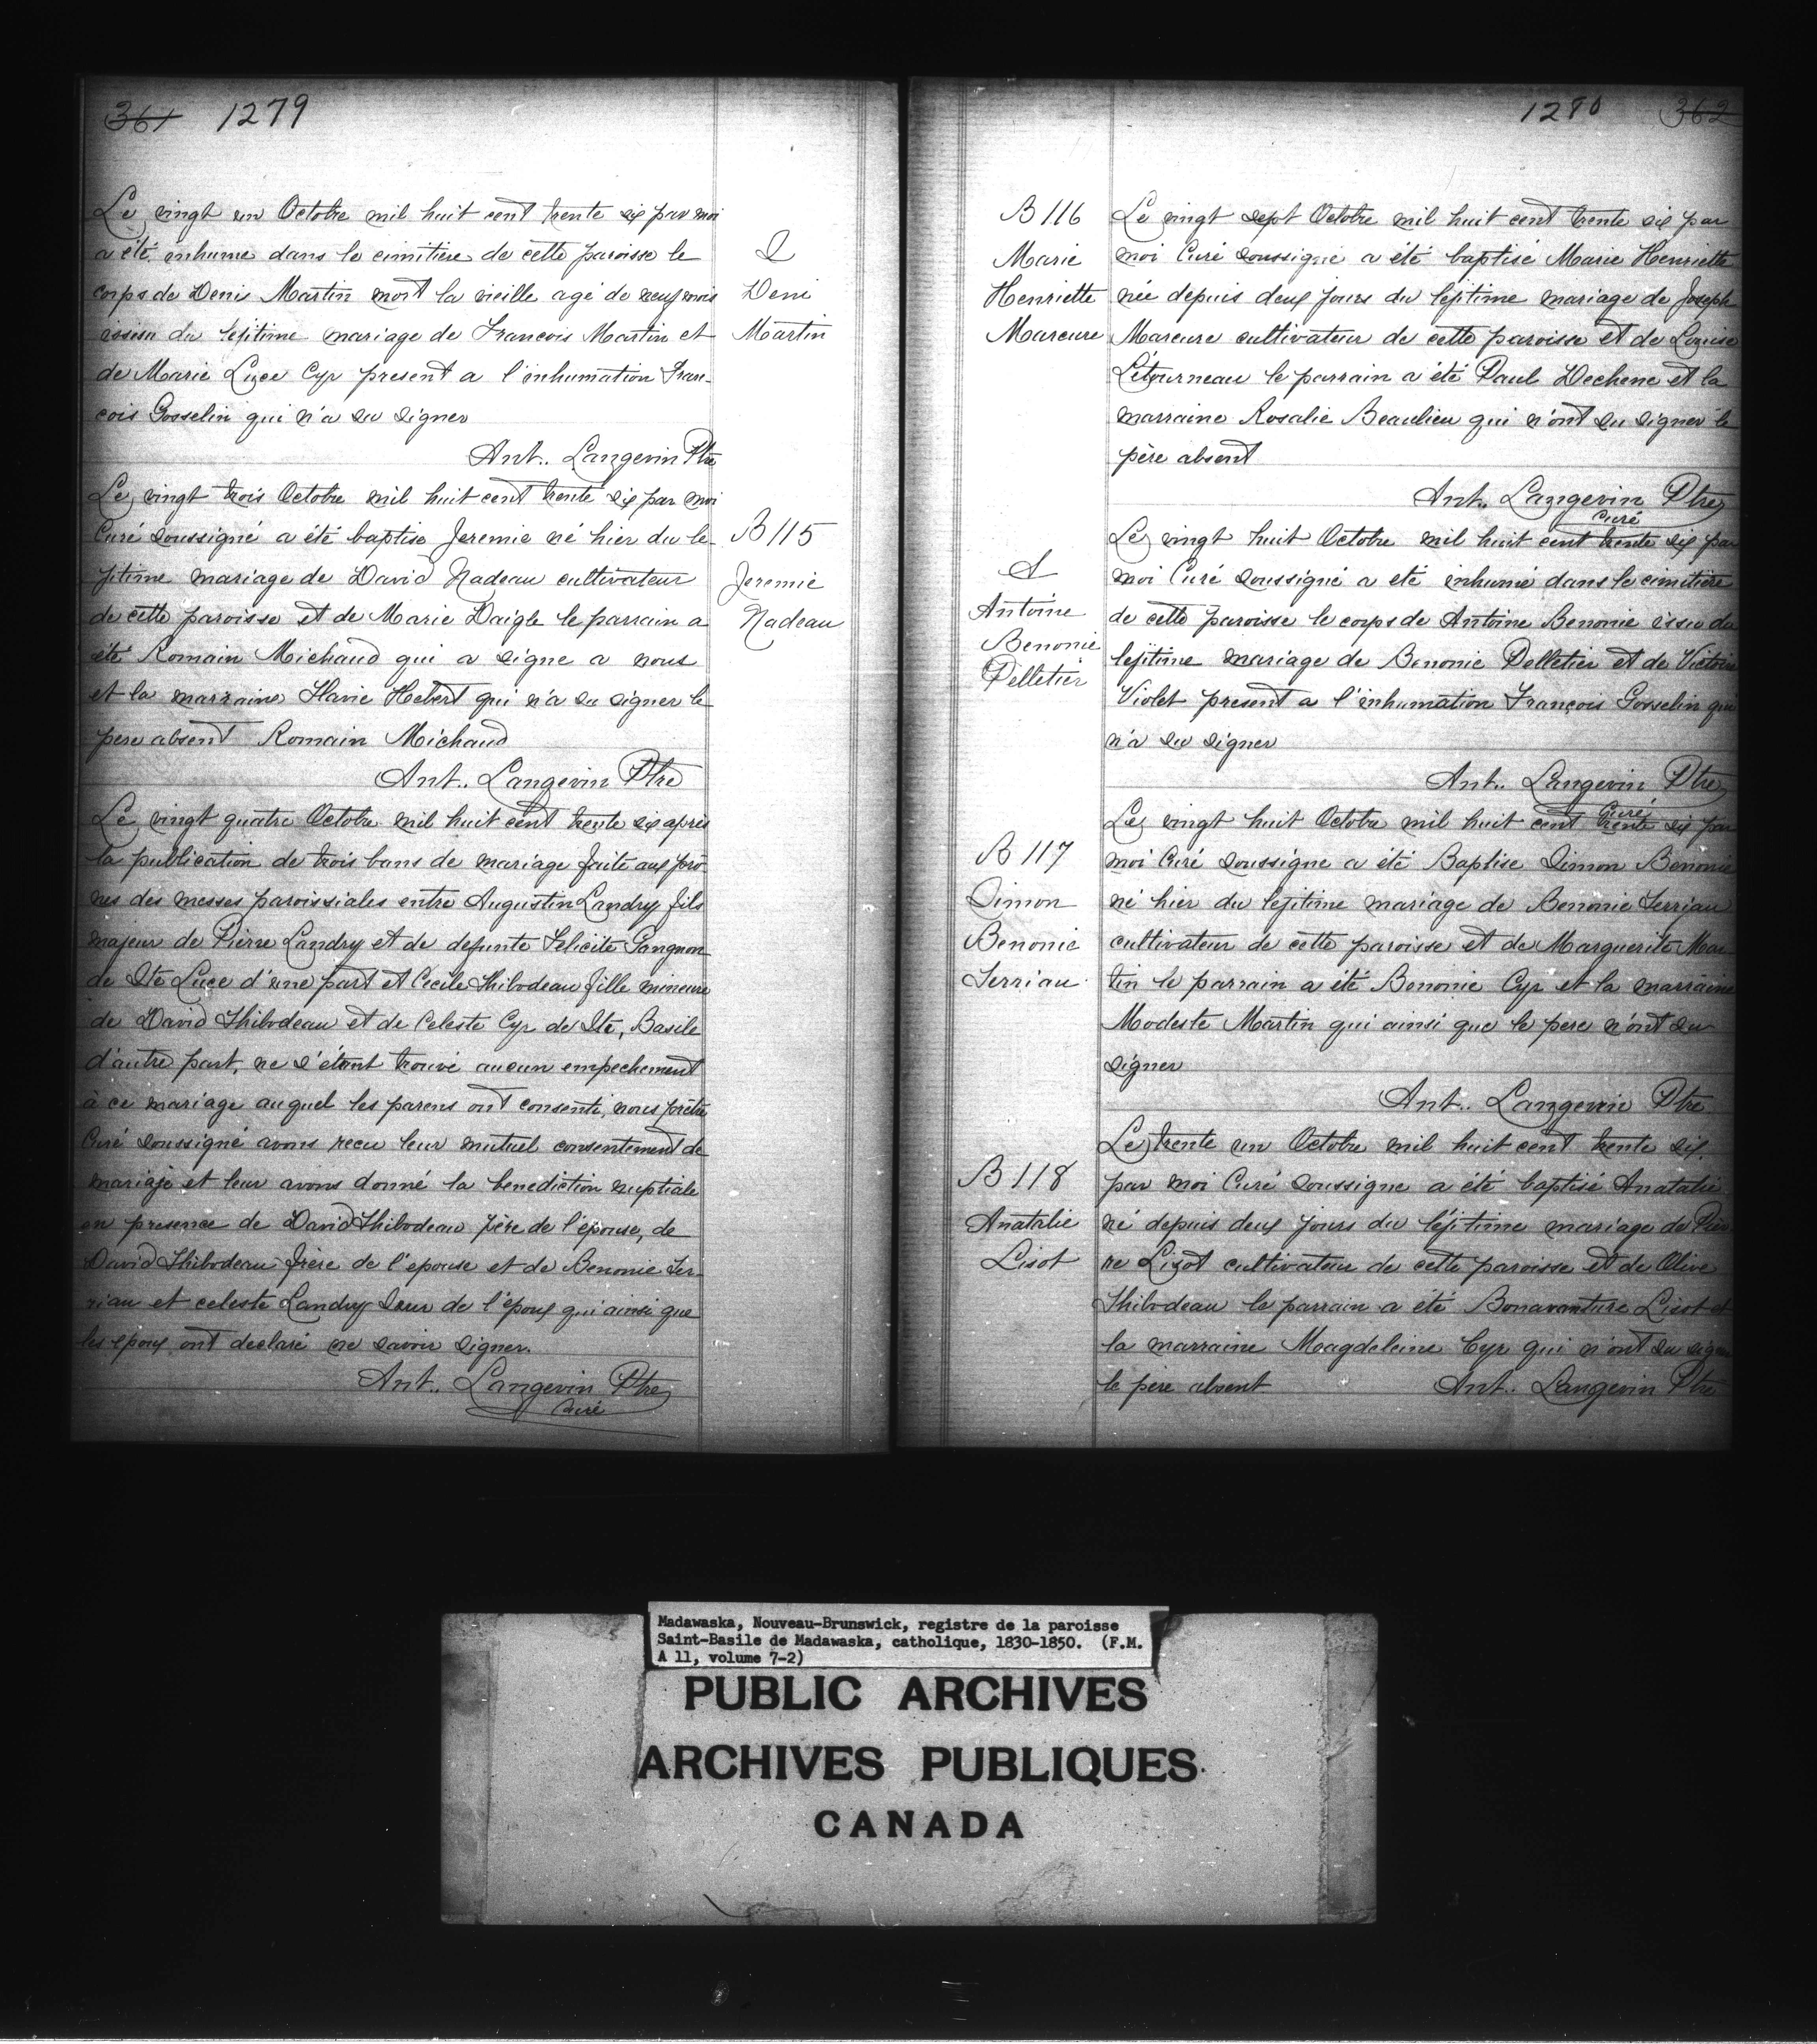 361 1279
Le vingt un Octobre mil huit cent trente six par moi
a été inhume dans le cimitière de cette paroisse le
corps de Denis Martin mort la vieille agé de neuf mois
issu du lejitime mariage de Francois Martin et
de Marie Luce Cyr present a l'inhumation Fran-
cois Gosselin qui n'a su signer
Ant.. Langevin Ptre
S
Deni
Martin
Le vingt trois Octobre mil huit cent trente six par moi
Curé soussigné a été baptise Jeremie né hier du le-
jitime mariage de David Nadeau cultivateur
de cette paroisse et de Marie Daigle le parrain a
été Romain Michaud qui a signe a nous
et la marraine Flavie Hebert qui n'a su signer le
pere absent Romain Michaud
Ant.. Langevin Ptre
B 115
Jeremie
Nadeau
Le vingt quatre Octobre mil huit cent trente six apres
la publication de trois bans de mariage faite aux prô-
nes des messes paroissiales entre Augustin Landry fils
majeur de Pierre Landry et de defunte Felicite Gangnon
de Ste Luce d'une part et Cecile Thibodeau fille mineure
de David Thibodeau et de Celeste Cyr de St, Basile
d'autre part, ne s'étant trouvé aucun empechement
à ce mariage auquel les parens ont consenti, nous prêtre
Curé soussigné avons recu leur mutuel consentement de
mariaje et leur avons donné la benediction nuptiale
en presence de David Thibodeau père de l'épouse, de
David Thibodeau frère de l'epouse et de Benonie Ter-
riau et celeste Landry Sœur de l'époux qui ainsi que
les epoux ont declaré ne savoir signer.
Ant.. Langevin Ptre
Curé
1280 362
B 116
Marie
Henriette
Marcure
Le vingt sept Octobre mil huit cent trente six par
moi Curé soussigné a été baptisé Marie Henriette
née depuis deux jours du lejitime mariage de Joseph
Marcure cultivateur de cette paroisse et de Louise
Létourneau le parrain a été Paul Dechene et la
marraine Rosalie Beaulieu qui n'ont su signer le
père absent
Ant.. Langevin Ptre
Curé
S
Antoine
Benonie
Pelletier
Le vingt huit Octobre mil huit cent trente six par
moi Curé soussigné a eté inhumé dans le cimitière
de cette paroisse le corps de Antoine Benonie issu du
lejitime mariage de Benonie Pelletier et de Victoire
Violet present a l'inhumation François Gosselin qui
n'a su signer
Ant.. Langevin Ptre
Curé
B 117
Simon
Benonie
Terriau
Le vingt huit Octobre mil huit cent trente six par
moi Curé soussigne a été Baptise Simon Benonie
né hier du lejitime mariage de Benonie Terriau
cultivateur de cette paroisse et de Marguerite Mar
tin le parrain a été Benonie Cyr et la marraine
Modeste Martin qui ainsi que le pere n'ont su
signer
Ant.. Langevin Ptre
B 118
Anatalie
Lisot
Le trente un Octobre mil huit cent trente six.
par moi Curé soussigne a été baptisé Anatalie
né depuis deux jours du léjitime mariage de Pier
re Lizot cultivateur de cette paroisse et de Olive
Thibodeau le parrain a été Bonavanture Lisot et
la marraine Magdeleine Cyr qui n'ont su signer
le père absent Ant.. Langevin Ptre
Madawaska, Nouveau-Brunswick, registre de la paroisse
Saint-Basile de Madawaska, catholique, 1830-1850. (F.M.
A 11, volume 7-2)
PUBLIC ARCHIVES
ARCHIVES PUBLIQUES
CANADA